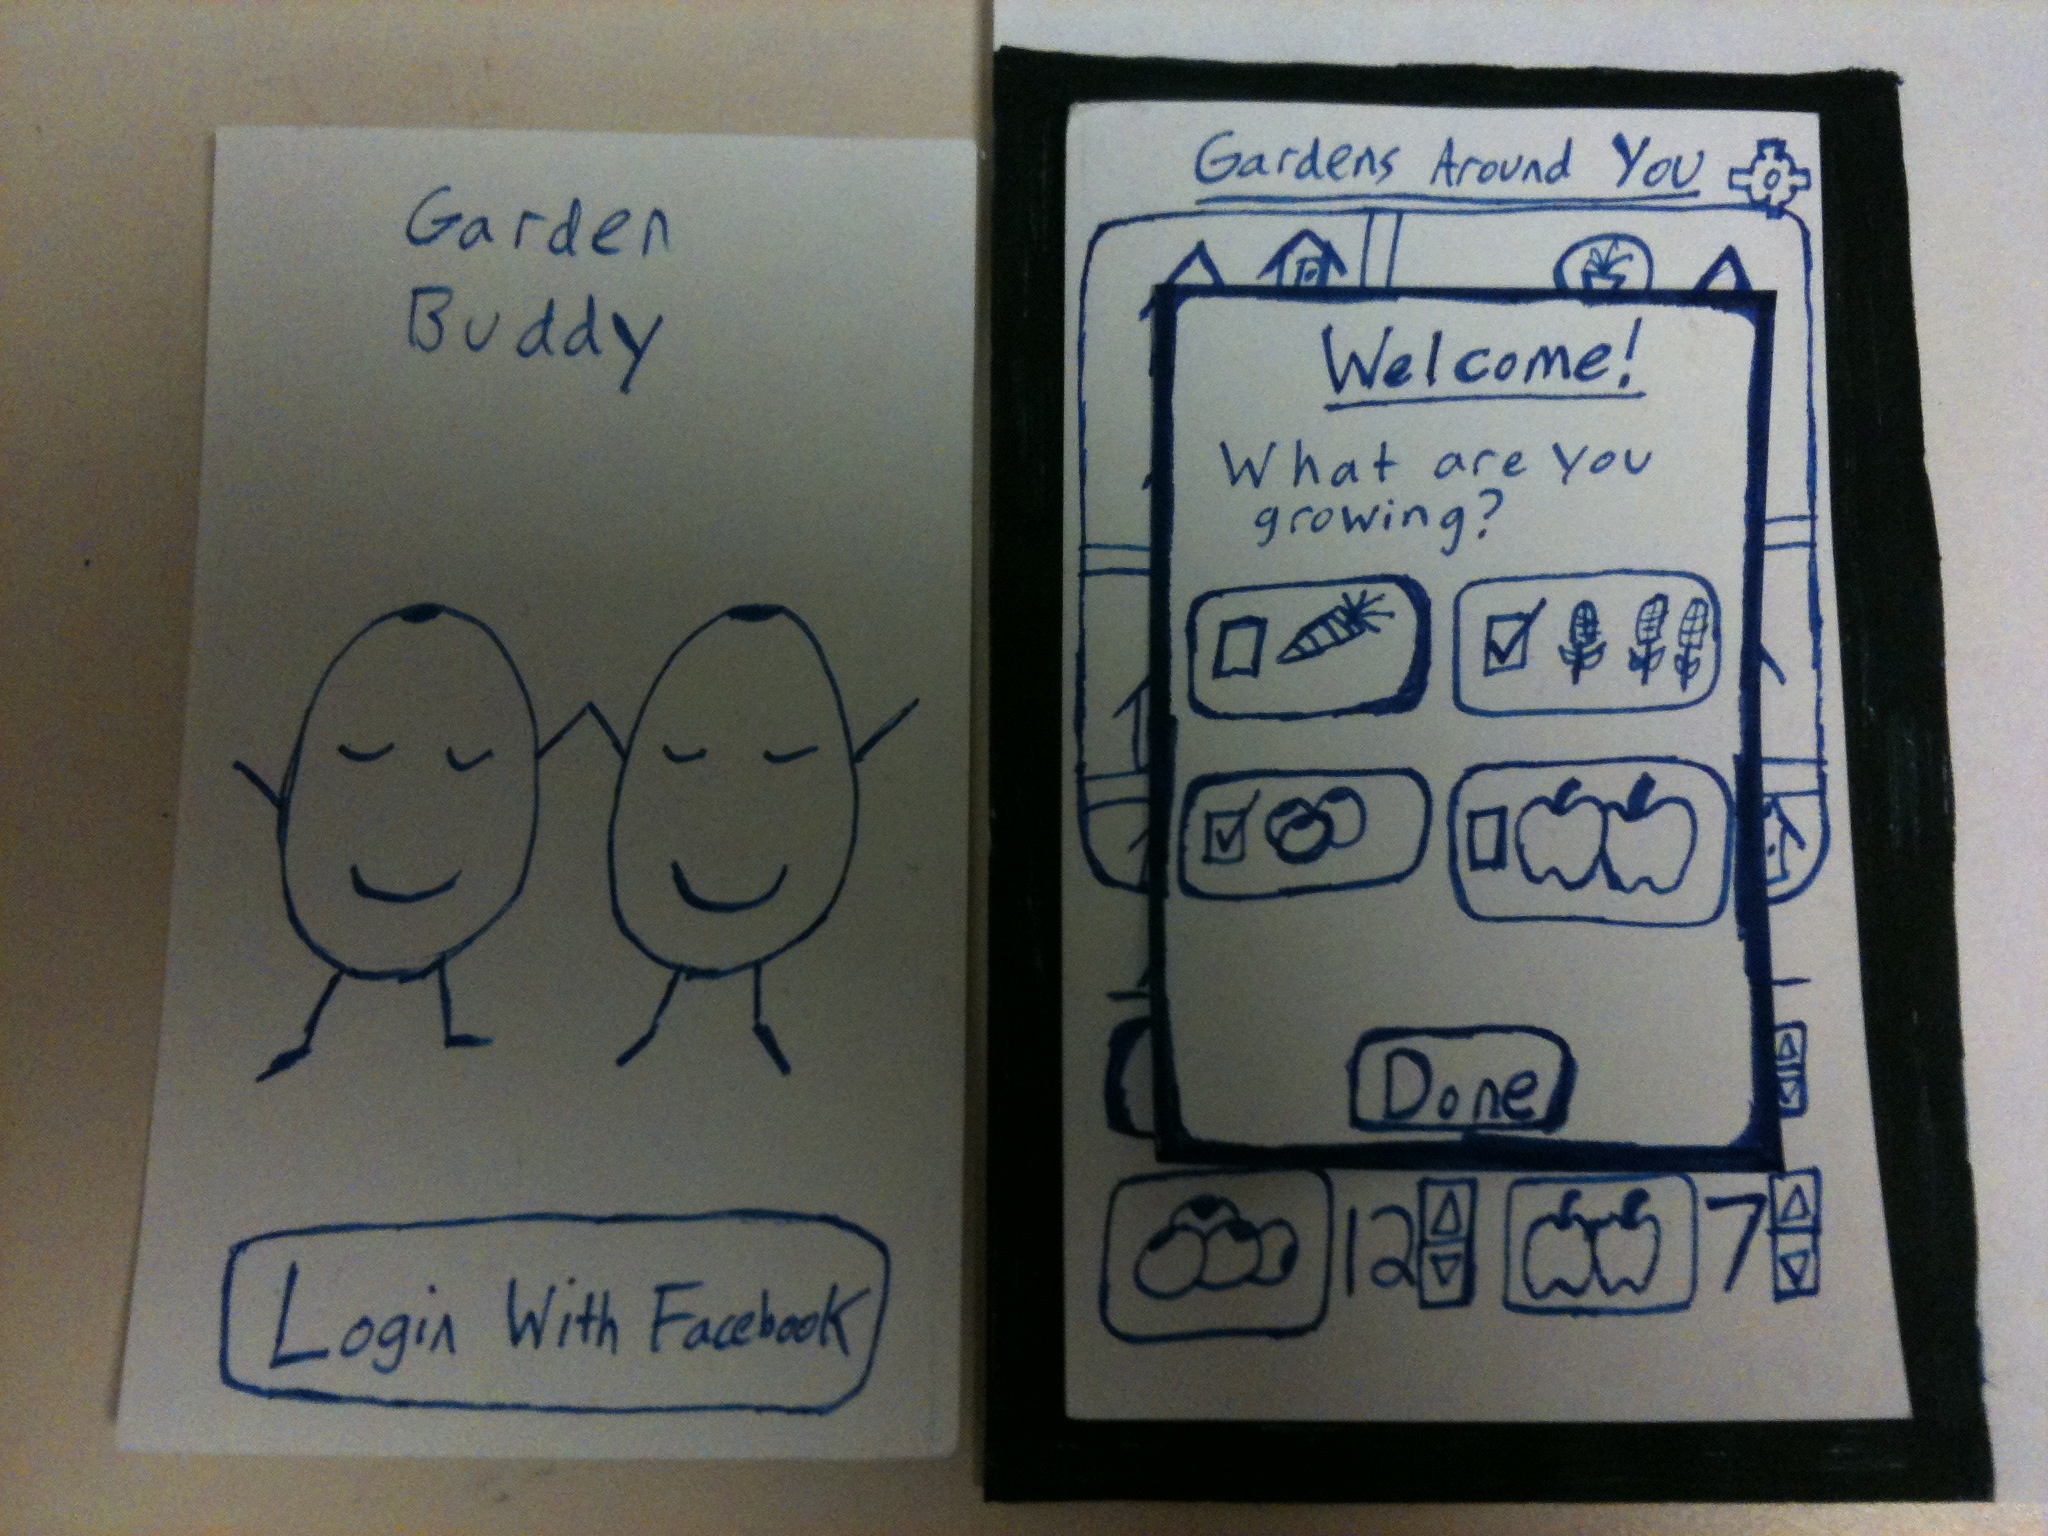 Garden
Buddy
Login With Facebook
Gardens Around You
Welcome!
What are you
growing?
Done
12
7